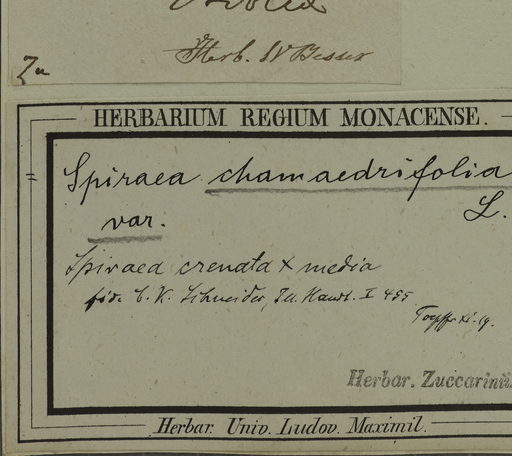 Herb. W Besser
Zu
HERBARIUM REGIUM MONACENSE.
Spiraea chamaedrifolia
L.
var.
Spiraea crenata x media
fide C. K. Schneider, Ill. Handb. I 455
Herbar. Zuccarinii
Herbar. Univ. Ludov. Maximil.